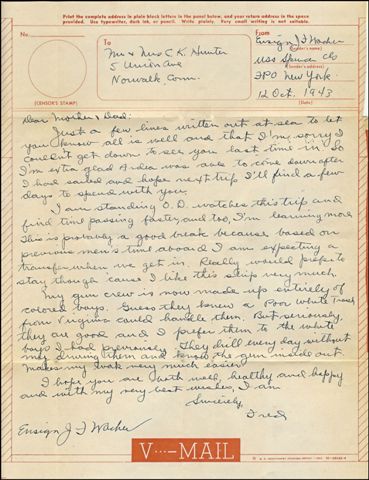 Print the complete address in plain block letters in the panel below, and your return address in the space
provided. Use typewriter, dark ink, or pencil. Write plainly. Very small writing is not suitable.
No.
(CENSOR'S STAMP)
To
Mr & Mrs C K Hunter
5 Union Ave
Norwalk, Conn.
From
Ensign J F Wacker
(Sender's name)
USS Spencer
(Sender's address)
FPO New York
12 Oct. 1943
(Date)
Dear Mother & Dad:
Just a few lines written out at sea to let
you know all is well and that I'm sorry I
couldn't get down to see you last time in. So
I'm extra glad was able to come down after
I had sailed and hope next trip I'll find a few
days to spend with you.
I am standing O.D. watches this trip and
find time passing faster and too, I'm learning more
This is probably a good break because based on
previous men's time aboard I am expecting a
transfer when we get in. Really would prefer to
stay though 'cause I like this ship very much.
My gun crew is now made up entirely of
colored boys. Guess they knew a Poor White Trash
from Virginia could handle them. But seriously,
they are good and I prefer them to the white
boys I had previously. They drill every day without
my driving them and know the gun inside out.
Makes my task very much easier.
I hope you are both well, healthy and happy
and with my very best wishes, I am
Sincerely,
Fred
Ensign J F Wacker
V···—MAIL